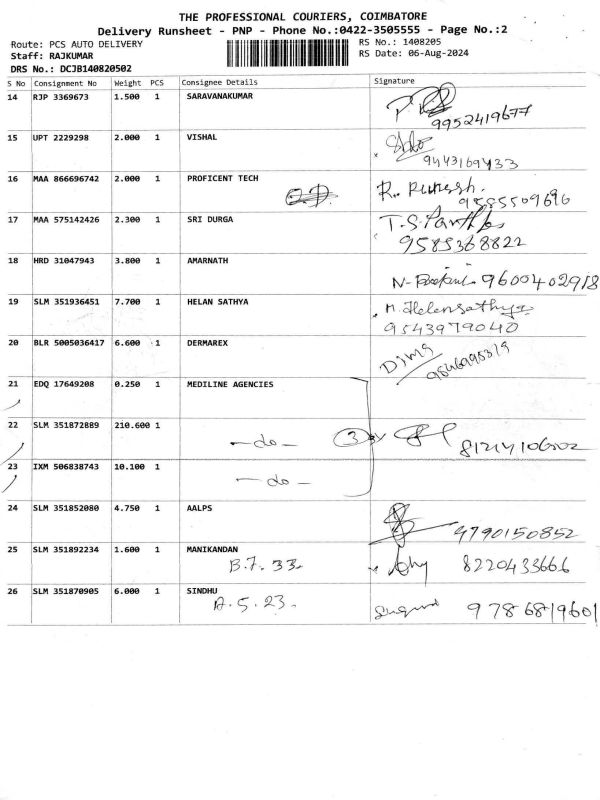 THE PROFESSIONAL COURIERS, COIMBATORE
Delivery Runsheet - PNP - Phone No.:0422-3505555 - Page No.:2
Route: PCS AUTO DELIVERY RS No.: 1408205
Staff: RAJKUMAR RS Date: 06-Aug-2024
DRS No.: DCJB140820502
S No Consignment No Weight PCS Consignee Details Signature
14 RJP 3369673 1.500 1 SARAVANAKUMAR
9952419677
15 UPT 2229298 2.000 1 VISHAL
9443169433
16 MAA 866696742 2.000 1 PROFICENT TECH R.
9585509696
17 MAA 575142426 2.300 1 SRI DURGA T.S.
9585368822
18 HRD 31047943 3.800 1 AMARNATH
N- 9600402918
19 SLM 351936451 7.700 1 HELAN SATHYA M. Helensathya
9543979040
20 BLR 5005036417 6.600 1 DERMAREX
21 EDQ 17649208 0.250 1 MEDILINE AGENCIES
22 SLM 351872889 210.600 1
-do- 3
23 IXM 506838743 10.100 1
-do-
24 SLM 351852080 4.750 1 AALPS
4790150852
25 SLM 351892234 1.600 1 MANIKANDAN
B.7.33. 8220433666
26 SLM 351870905 6.000 1 SINDHU
A.5.23. 9786819601